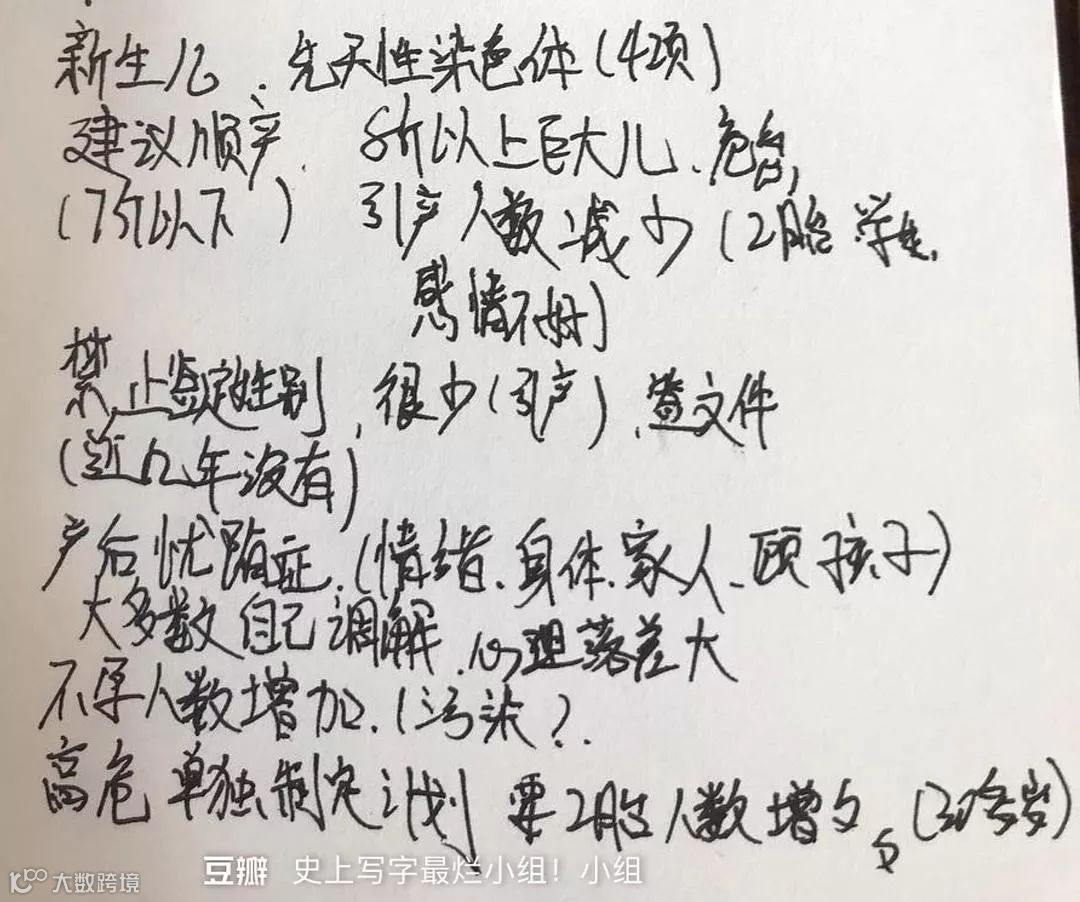 新生儿、先天性染色体(4项)
建议顺产. 8斤以上巨大儿、危害,
(7斤以下) 引产人数减少(2胎 学生,
感情不好)
禁止鉴定性别, 很少(引产)、签文件
(近几年没有)
产后忧郁症、(情绪、身体、家人、顾孩子)
大多数自己调解、心理落差大
不孕人数增加、(污染?
高危 单独制定计划 要2胎人数增多,(30多岁)
豆瓣 史上写字最烂小组!小组
大数跨境